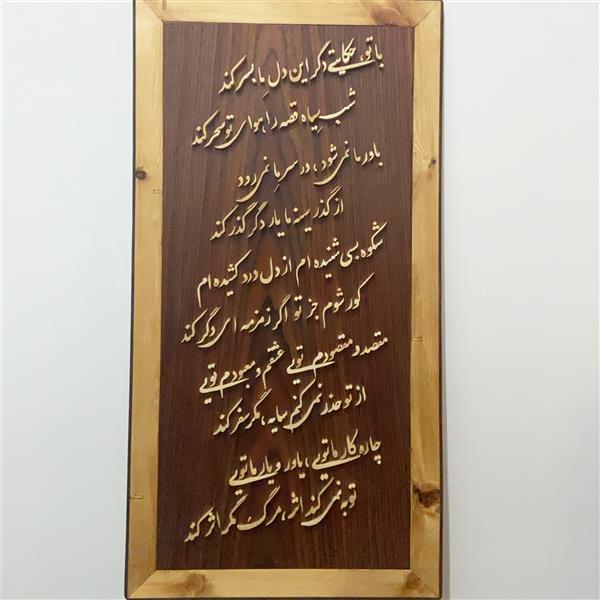 با تو حکایتی دگر این دل ما بسر کند
شب سیاه قصه را هوای تو سحر کند
باور ما نمی شود ، در سر ما نمی رود
از گذر سینه ما یار دگر گذر کند
شکوه بسی شنیده ام از دل درد کشیده ام
کور شوم جز تو اگر زمزمه ای دگر کند
مقصد و مقصودم تویی عشقم و معبودم تویی
از تو حذر نمی کنم سایه ، مگر سفر کند
چاره کار ما تویی ، یاور و یار ما تویی
توبه نمی کند اثر ، مرگ مگر اثر کند